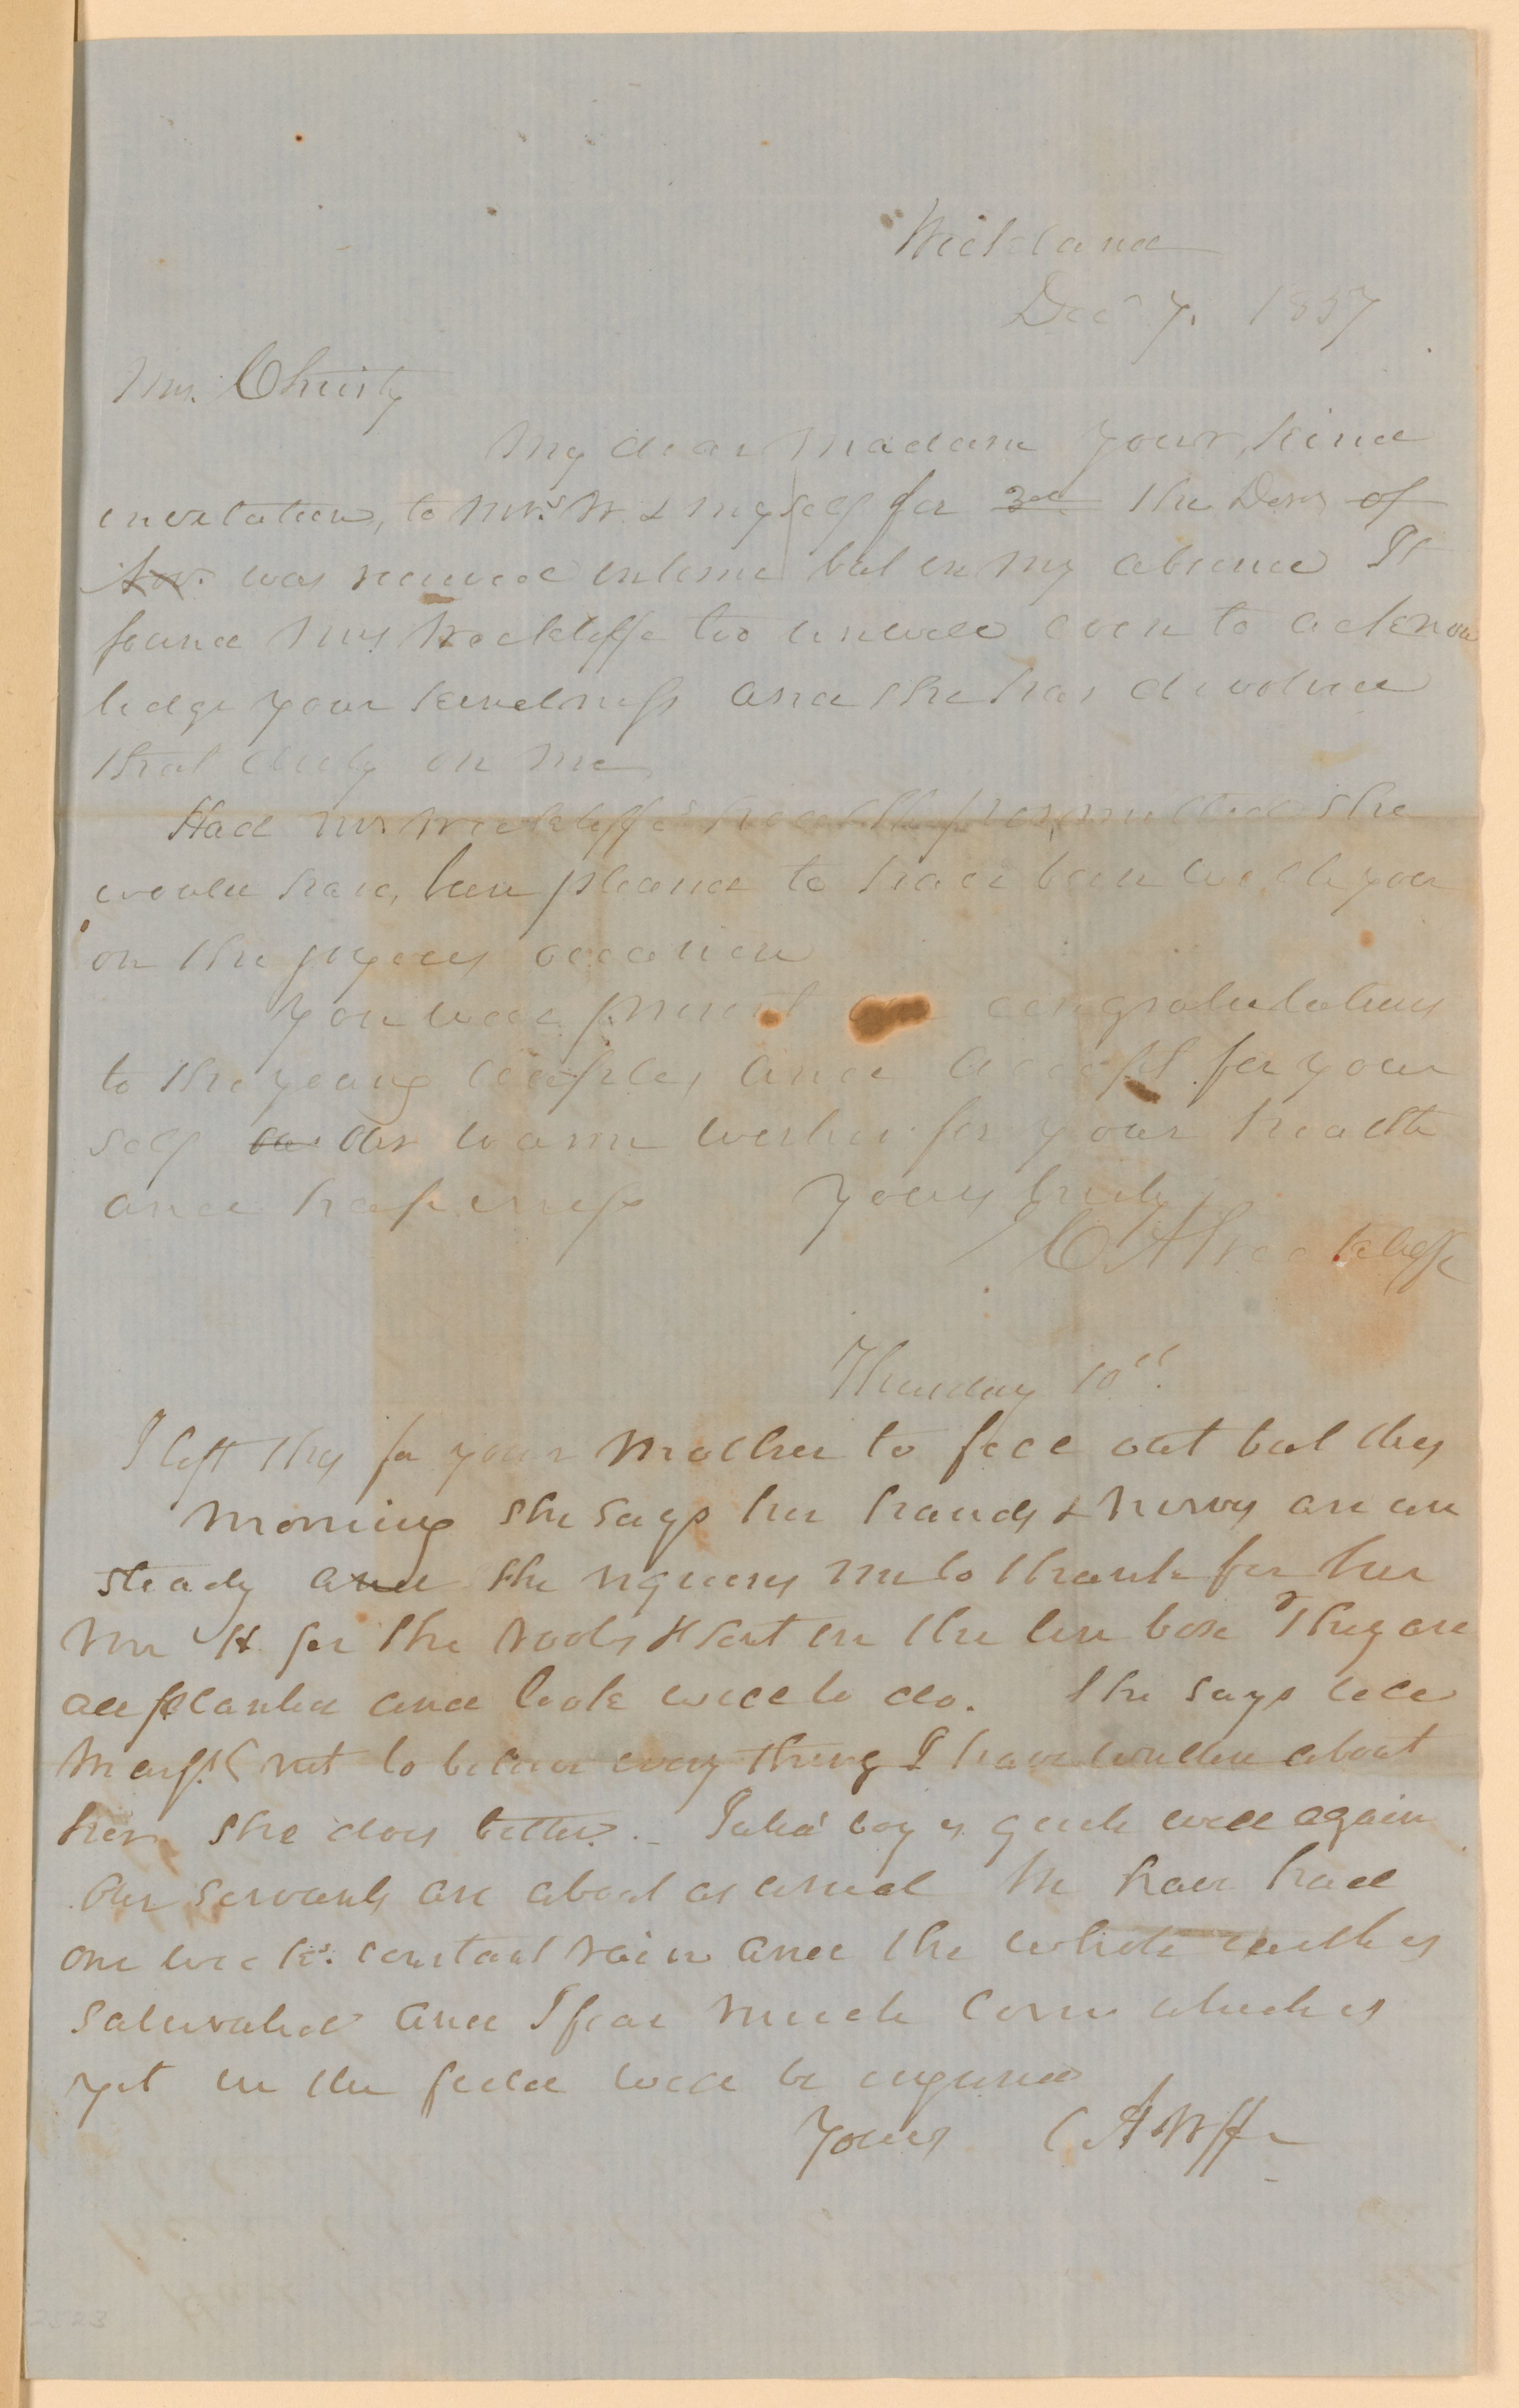 Wickland
Dec 7. 1857
Mrs. Christy
My dear Madam your kind
invitation, to Mrs. W & myself for 3d the Decr of
Nov. was received in time but in my absence It
found Mrs Wickliffe too unwell even to acknow
ledge your kindness and she has devolved
that duty on me
Had Mrs Wickliffe's health permitted she
would have been pleased to have been with you
on the joyous occasion
You will present our congratulations
to the young couple, and accept for your
self our warm wishes for your health
and happiness Yours truly
C A Wickliffe
Thursday 10th.
I left this for your Mother to fill out but this
morning she says her hands & nerves are un
steady and she requires me to thank for her
Mr H for the roots sent in the tin box They are
all planted and look well to do. She says tell
not to believe every thing I have written about
her she does better. Julia' boy is quite well again
Our servants are about as usual We have had
one week's constant rain and the whole earth is
saturated and I fear much corn which is
yet in the field will be injured
Yours C A Wffe